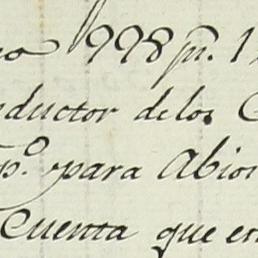 998 p.^s 1
nductor de los C
p.^o para Abios
Cuenta que en